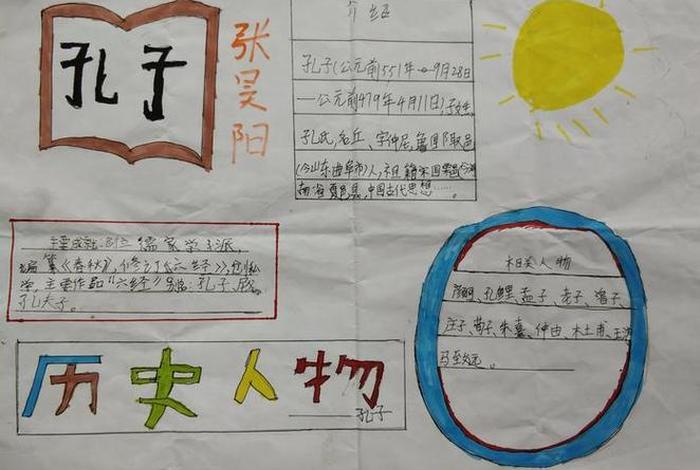 孔子
张昊阳
介绍
孔子(公元前551年9月28日
—公元前479年4月11日),子姓,
孔氏,名丘、字仲尼,鲁国陬邑
(今山东曲阜市)人,祖籍宋国栗邑
夏邑县,中国古代思想……
主要成就:创立儒家学派,
编纂《春秋》,修订《六经》,
主要作品"六经"别名:孔子、
孔夫子.
历史人物
孔子
相关人物
颜回、孔鲤、孟子、老子、
庄子、荀子、朱熹、仲由、
马致远。